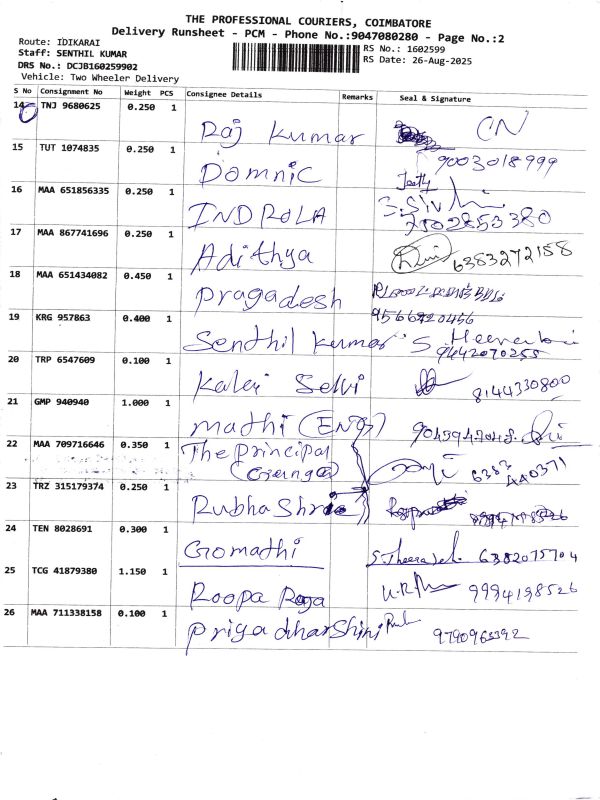 THE PROFESSIONAL COURIERS, COIMBATORE
Delivery Runsheet - PCM - Phone No.:9047080280 - Page No.:2
Route: IDIKARAI
Staff: SENTHIL KUMAR
DRS No.: DCJB160259902
Vehicle: Two Wheeler Delivery
RS No.: 1602599
RS Date: 26-Aug-2025
S No Consignment No Weight PCS Consignee Details Remarks Seal & Signature
14 TNJ 9680625 0.250 1 Raj Kumar CN
15 TUT 1074835 0.250 1 Domnic 9003018999
16 MAA 651856335 0.250 1 INDROLA 7502853380
17 MAA 867741696 0.250 1 Adithya 6383272158
18 MAA 651434082 0.450 1 Pragadesh
19 KRG 957863 0.400 1 Senthil Kumar 9566920456
9442070255
20 TRP 6547609 0.100 1 Kalai Selvi 8144330800
21 GMP 940940 1.000 1 Mathi (ENG)
22 MAA 709716646 0.350 1 The Principal
6382
440371
23 TRZ 315179374 0.250 1 Rubha Shree
24 TEN 8028691 0.300 1 Gomathi 6382075704
25 TCG 41879380 1.150 1 Roopa Roga 9994198526
26 MAA 711338158 0.100 1 Priyadharshini 9790963392